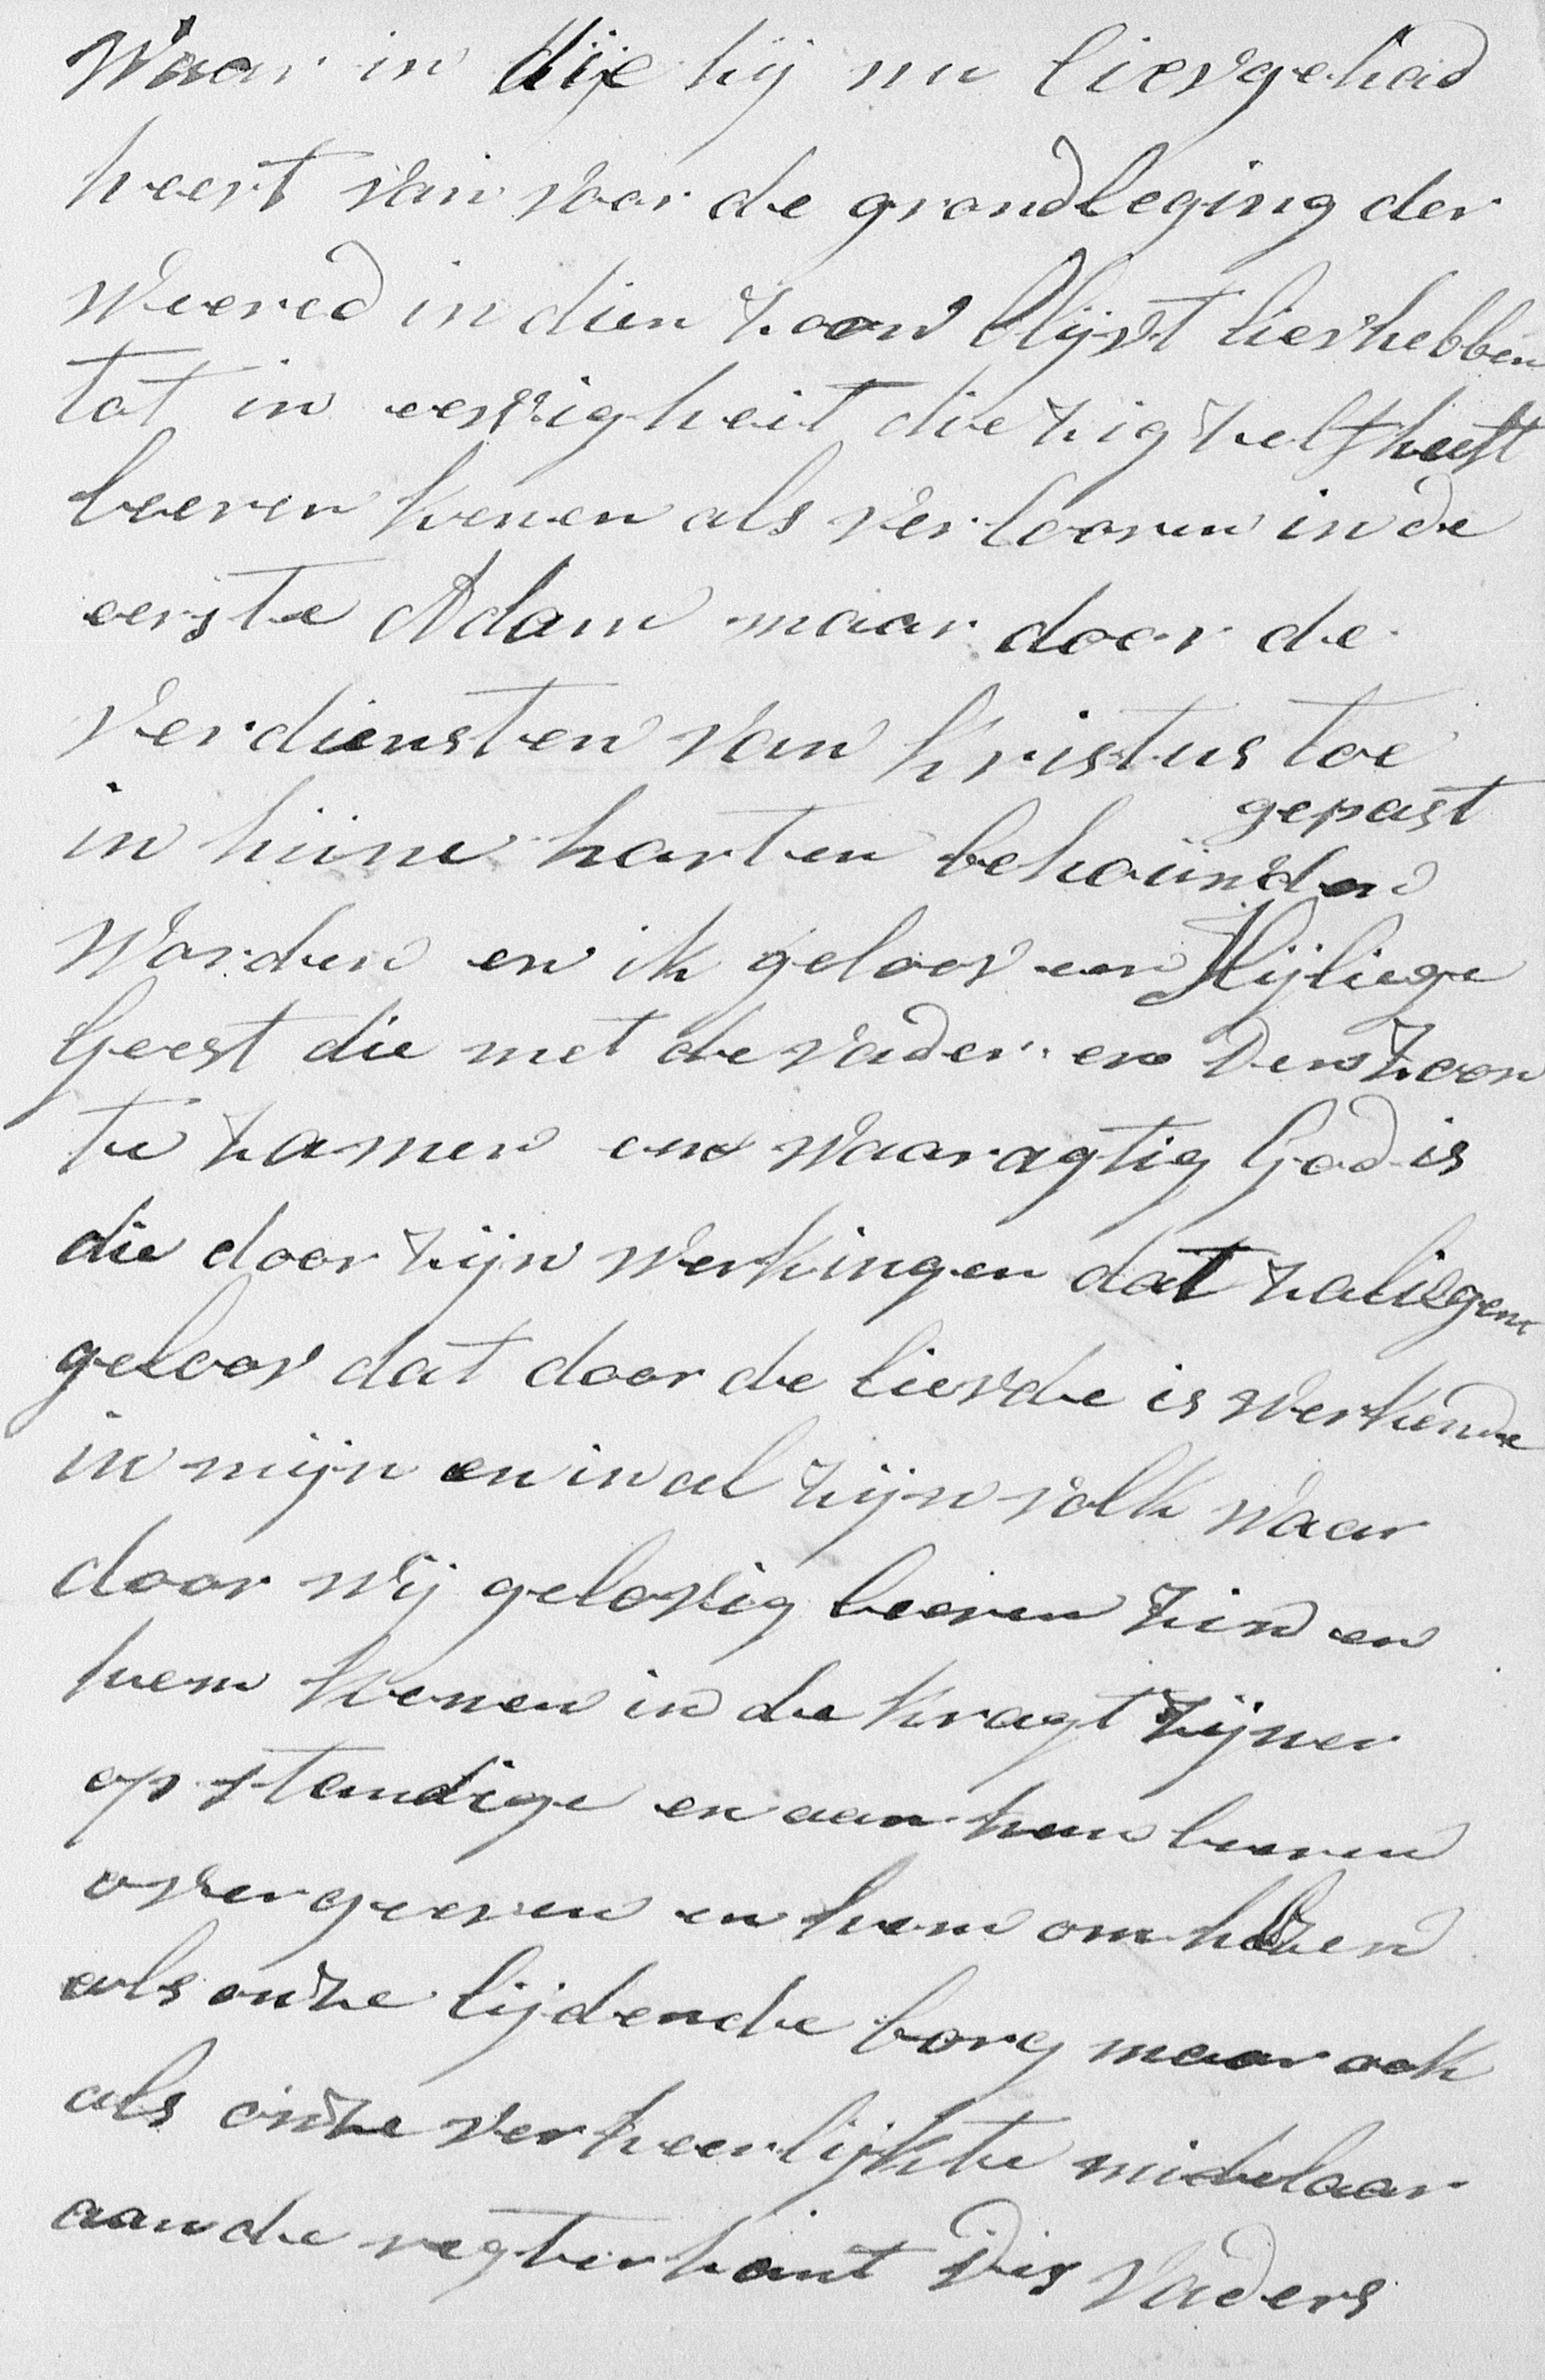 Waar in dije hij nu lievgehad
heevt van voor de grondleging der
weereld in dien zoon blijvt lievhebben
tot in eewigheit die zig zelf heeft
leeren kenen als verlooren in de
eerste Adam maar door de
verdiensten van kristus toe
gepast
in hüne harten behoünden
worden en ik geloov een Hijliege
Geest die met de vader en Den zoon
te zamen een waaragtig God is
die door zijn werkingen dat zaliegent
geloov dat door de lievde is werkende
in mijn en in al zijn volk waar
door wij gelovig leeren zien en
hem kenen in de kragt zijner
opstandige en aan hem leeren
overgeeven en hem omhelzen
als onze lijdende borg maar ook
als onze verheerlijkte midelaar
aan de regterhant Des Vaders